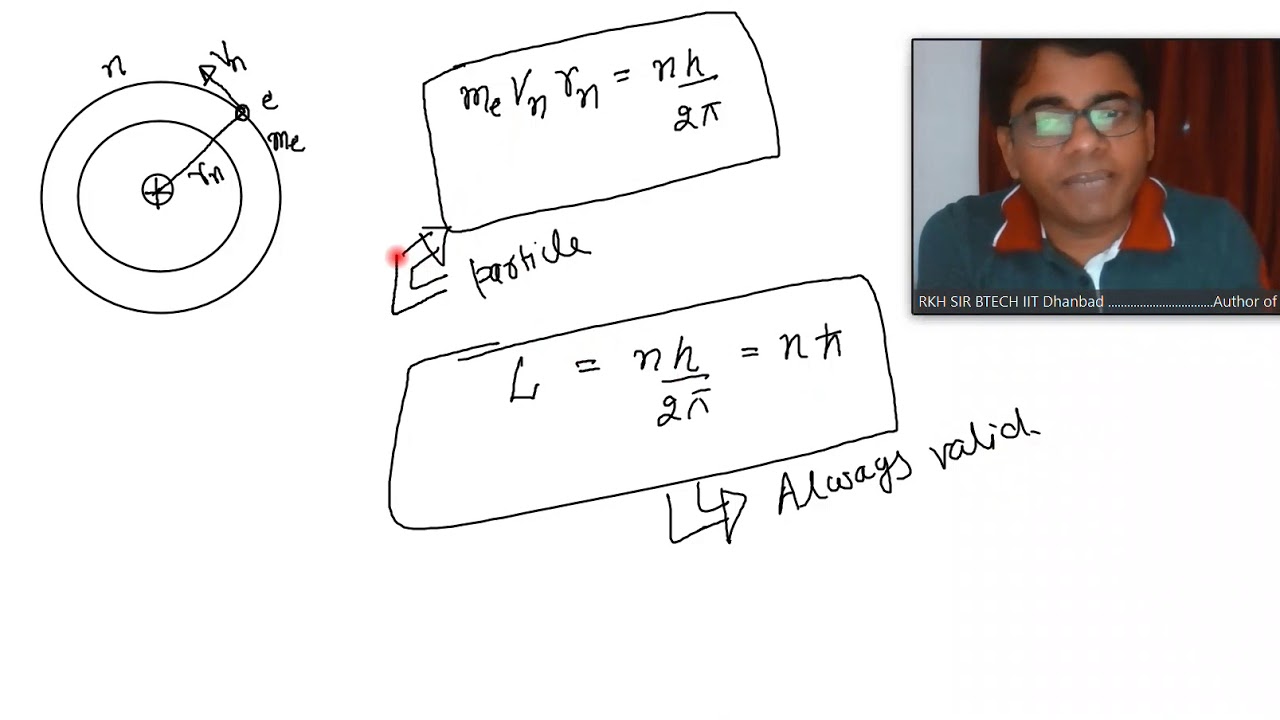 n
Vn
e
me
rn
+
me Vn rn = nh/2π
particle
L = nh/2π = nħ
Always valid
RKH SIR BTECH IIT Dhanbad ..................................Author of